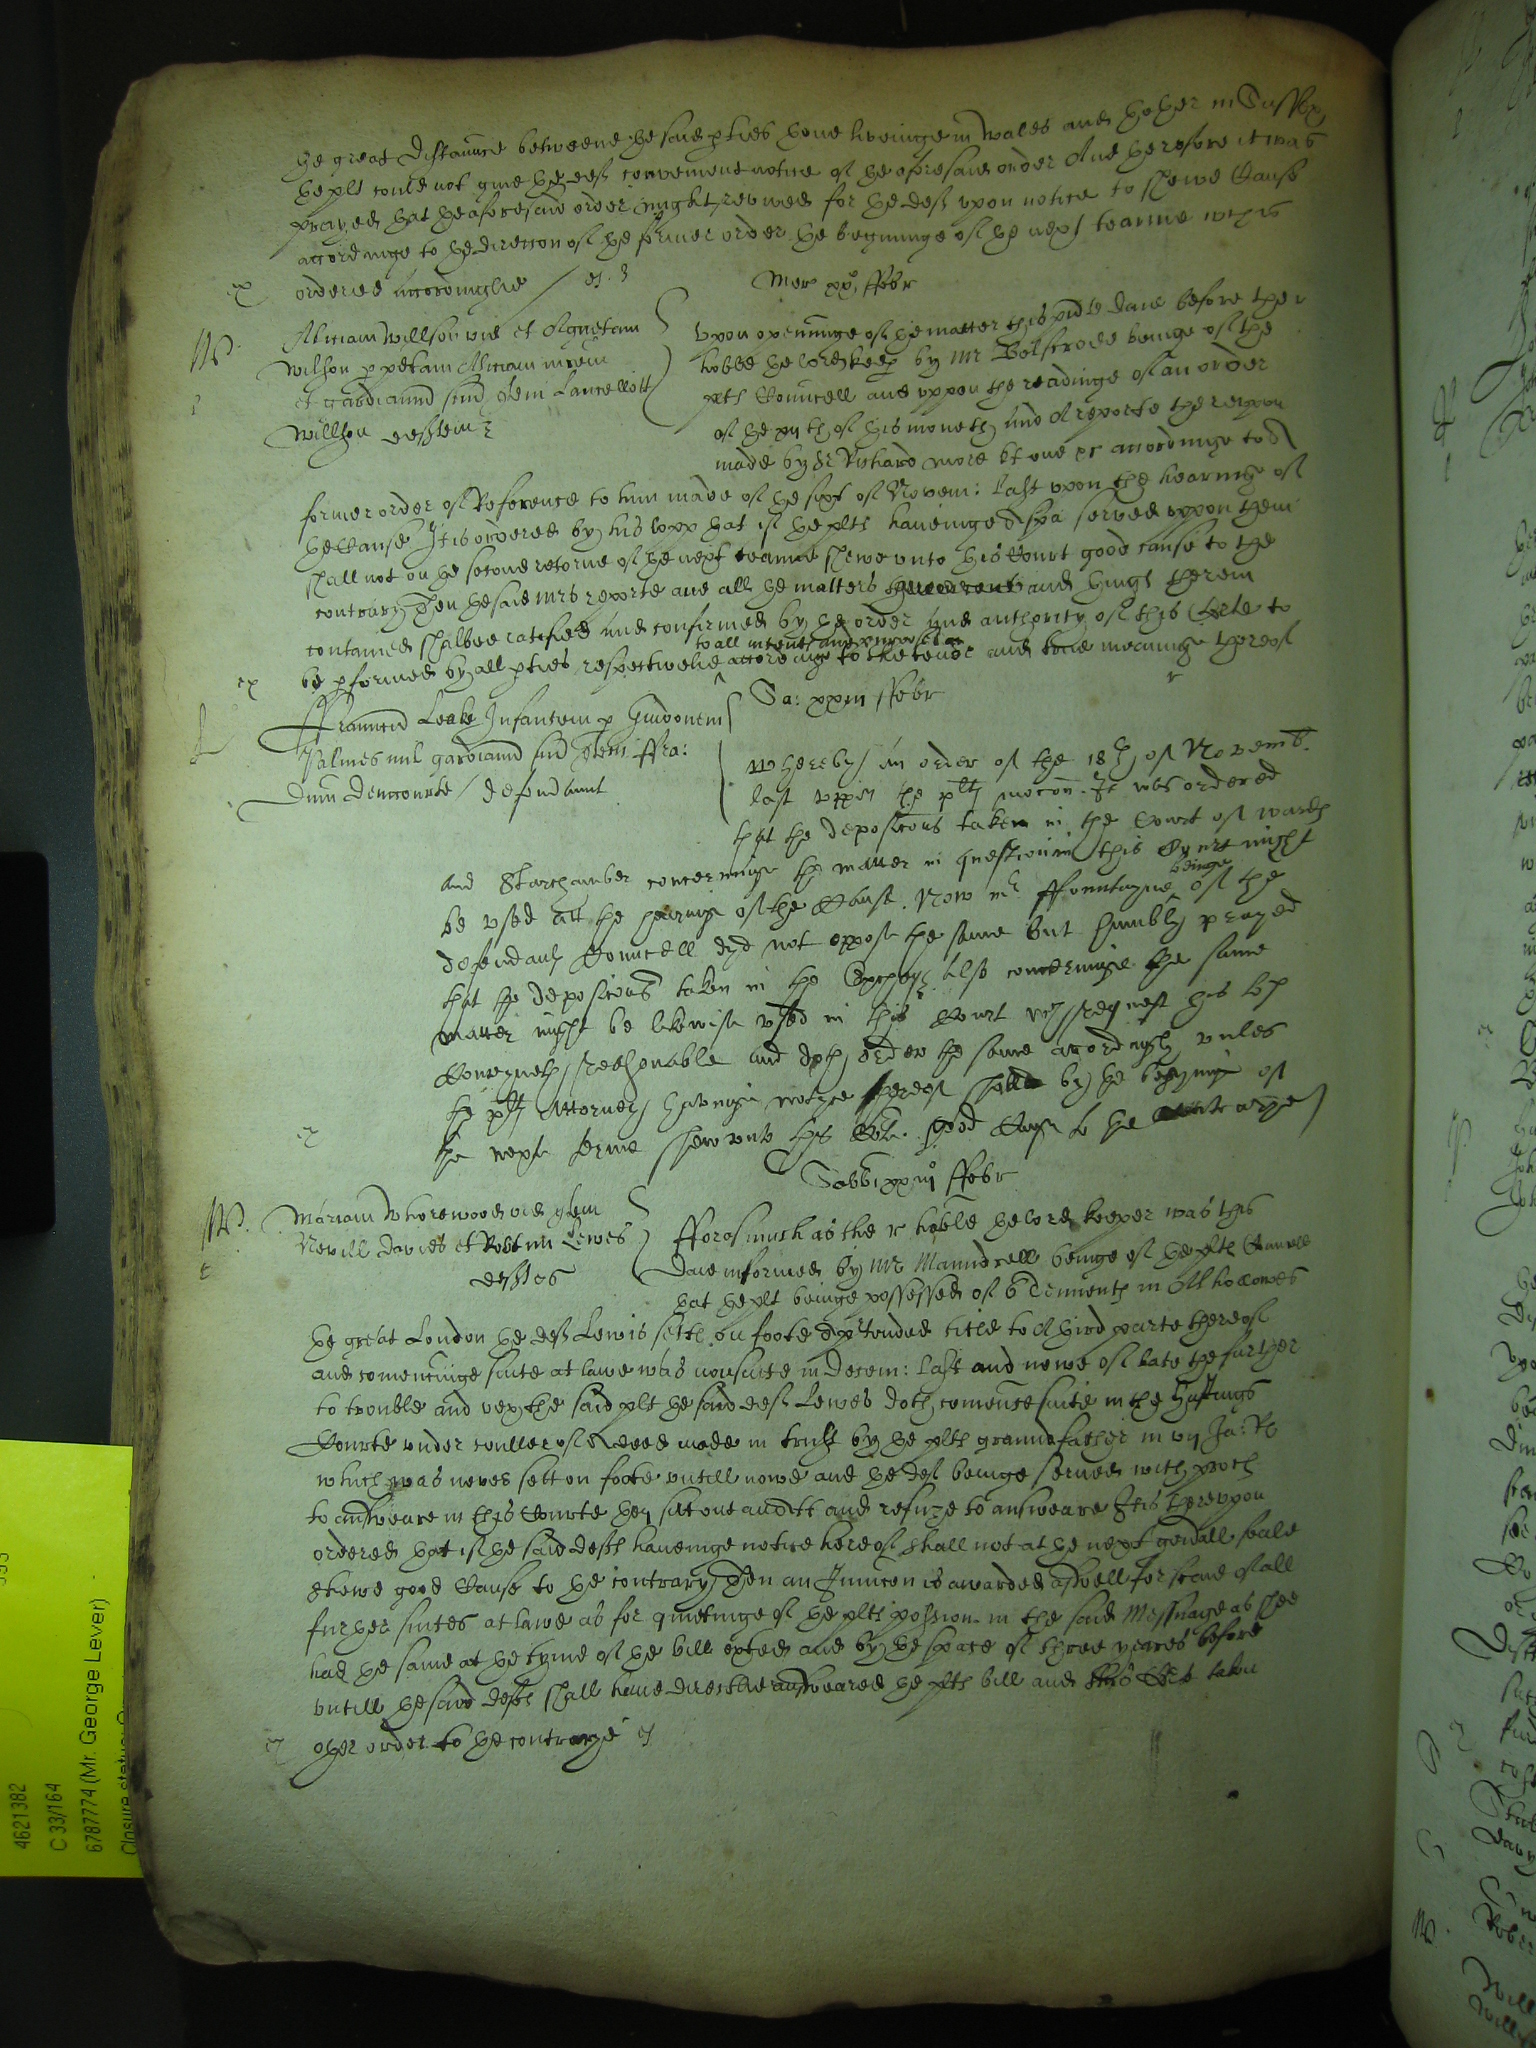 the great distaunce betweene the said pties thone liveinge in Wales and thother in Sussex
the plt could not give the deft convenient notice of the aforesaid order And therefore it was
prayed that the aforesaid order might revived for the deft upon notice to shewe Cause
accordinge to the direccon of the former order the begininge of the next tearme wch is
ordered accordinglie
Mer xx° ffebr
Aliciam Willson vid et Agnetam
Wilson p pdctam Aliciam
et gardianud suu quem Lancellott
Willson defftem
Upon openinge of the matter this pnte daie before the r
hoble the lord keep by Mr Bolstrode beinge of the
plts Councell and uppon the readinge of an order
of the xij th of this moneth and A reporte thereupon
made by Sr Richard more kt one &c accordinge to A
former order of Reference to him made of the sixt of Novem: last upon the hearinge of
the Cause It is ordered by his lopp that if the plts haveinge A spa served uppon them
shall not on the second retorne of the next tearme shewe unto this Court good cause to the
contrary Then the said mrs reporte and all the matters and things therein
contained shalbee ratified and confirmed by the order and authority of this Corte to
to all intents and purposes
be pformed by all pties respectivelie accordinge to the tenor and true meaninge thereof
Sa: xxiij ffebr
ffrancu Leake Infantem p Guidonem
Palmes mil gardianu suu quem ffra:
Dnm Dencourte / defendaunt
Whereby an order of the 18th of Novemb.
last uppon the plts mocon. It was ordered
that the deposicons taken in the Court of wards
and Starchamber concerninge the matter in question in this Court might
be used att the hearinge of the Cause. Now mr ffountayne beinge of the
defendants Councell dyd not oppose the same but humbly prayed
that the deposicons taken in the Exchqr also concerninge the same
matter might be likewise used in this Court wch request his lop
Conceyveth reasonable and doth order the same accordingly unles
the plts Attorney havinge notyce thereof shall by the begynninge of
the next terme shew unto this Cort good Cause to the contrarye
Sabbi xxiij° ffebr
Mariam Whorewood vid quem
Nevill Davies et Robtm Lewes
defftes
fforasmuch as the r hoble the lord keeper was this
daie informed by Mr Maundrell beinge of the plts Councell
that the plt beinge possessed of 6 Tenemts in Allhallowes
the great London the deft Lewis setth on foote A ptended title to A third parte thereof
and comencinge suite at lawe was nonsuite in Decem: last and nowe of late the further
to trouble and vex the said plt the said deft Lewes doth comence suite in the Hustings
Courte under couller of A deed made in trust by the plts grandfather in vij Ja: R
which was never sett on foote untill nowe and the deft beinge served with proch
to answeare in this Courte they sitt out and refuze to answeare It is thereupon
ordered that if the said defts haveinge notice hereof shall not at the next genall seale
shewe good Cause to the contrary Then an Iniuncon is awarded aswell for staie of all
further suites at lawe as for quietinge of the plts possion in the said Messuage as shee
had the same at the tyme of the bill exhted and by the space of three yeares before
untill the said defts shall have directlie answeared the plts bill and this Corte taken
other order to the contrarye
4621382
C 33/164
6787774 (Mr. George Lever)